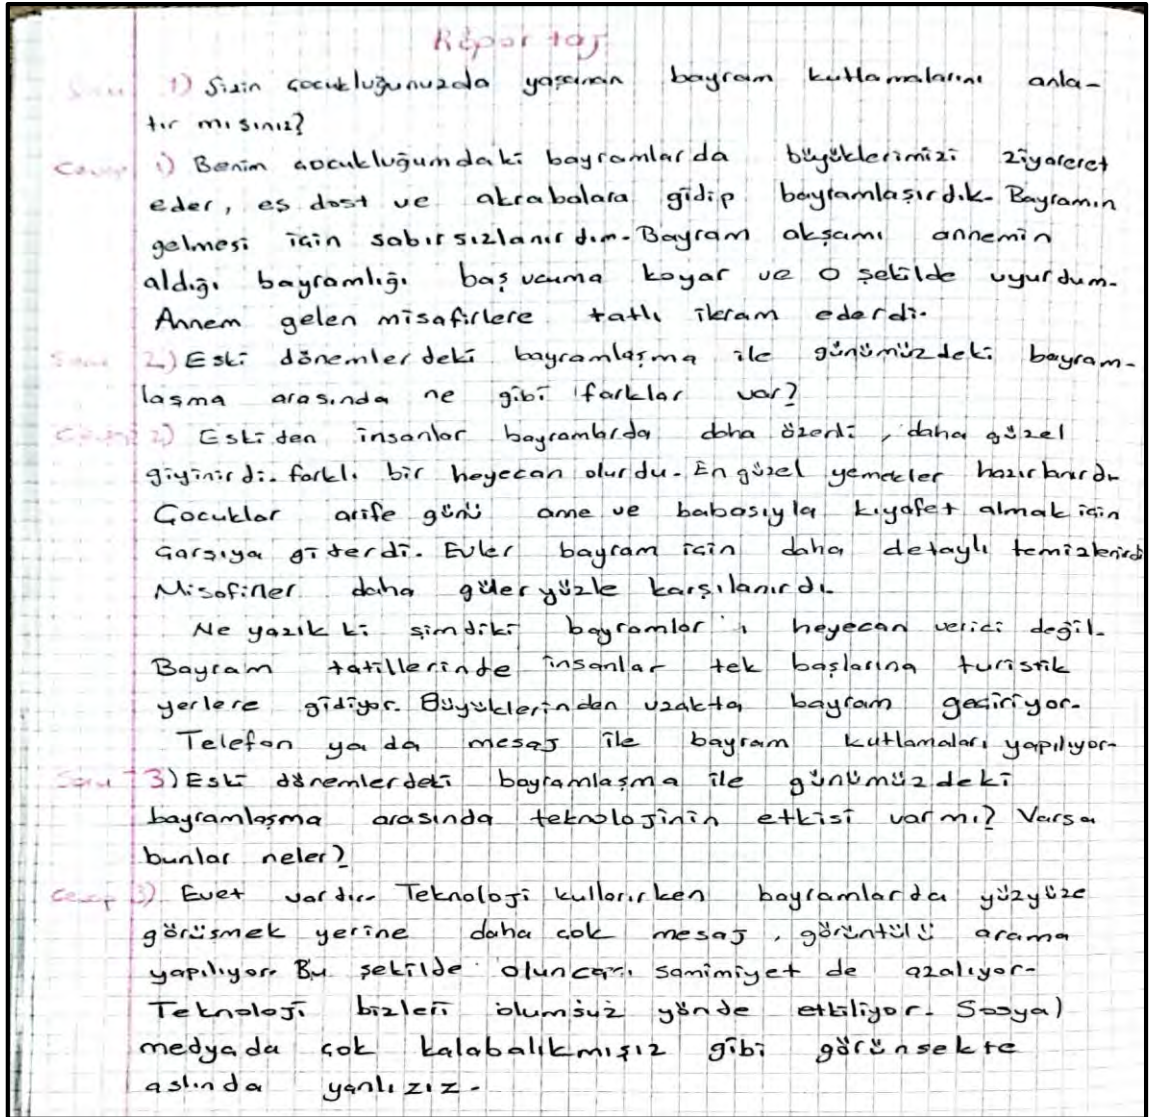 Röportaj
Soru 1) Sizin çocukluğunuzda yaşanan bayram kutlamalarını anla-
tır mısınız?
Cevap 1) Benim çocukluğumdaki bayramlarda büyüklerimizi ziyareret
eder, eş dost ve akrabalara gidip bayramlaşırdık. Bayramın
gelmesi için sabırsızlanırdım. Bayram akşamı annemin
aldığı bayramlığı baş ucuma koyar ve o şekilde uyurdum.
Annem gelen misafirlere tatlı ikram ederdi.
Soru 2) Eski dönemlerdeki bayramlaşma ile günümüzdeki bayram-
laşma arasında ne gibi farklar var?
Cevap 2) Eskiden insanlar bayramlarda daha özenli, daha güzel
giyinirdi. farklı bir heyecan olurdu. En güzel yemekler hazırlanırdı
Çocuklar arife günü anne ve babasıyla kıyafet almak için
çarşıya giderdi. Evler bayram için daha detaylı temizlenirdi
Misafirler daha güler yüzle karşılanırdı.
Ne yazık ki şimdiki bayramlar heyecan verici değil.
Bayram tatillerinde insanlar tek başlarına turistik
yerlere gidiyor. Büyüklerinden uzakta bayram geçiriyor.
Telefon ya da mesaj ile bayram kutlamaları yapılıyor.
Soru 3) Eski dönemlerdeki bayramlaşma ile günümüzdeki
bayramlaşma arasında teknolojinin etkisi var mı? Varsa
bunlar neler?
Cevap 3) Evet vardır. Teknoloji kullanırken bayramlarda yüzyüze
görüşmek yerine daha çok mesaj, görüntülü arama
yapılıyor. Bu şekilde olunca samimiyet de azalıyor.
Teknoloji bizleri olumsuz yönde etkiliyor. Sosyal
medyada çok kalabalıkmışız gibi görünsekte
aslında yanlızız.